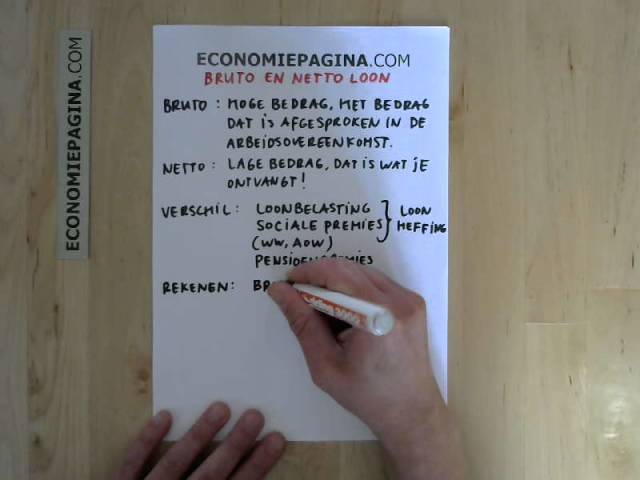 ECONOMIEPAGINA.COM
ECONOMIEPAGINA.COM
BRUTO EN NETTO LOON
BRUTO: HOGE BEDRAG, HET BEDRAG
DAT iS AFGESPROKEN IN DE
ARBEIDSOVEREENKOMST.
NETTO: LAGE BEDRAG, DAT iS WAT jE
ONTVANGT!
VERSCHIL: LOONBELASTING
SOCIALE PREMIES } LOON HEFFING
(WW, AOW)
REKENEN: